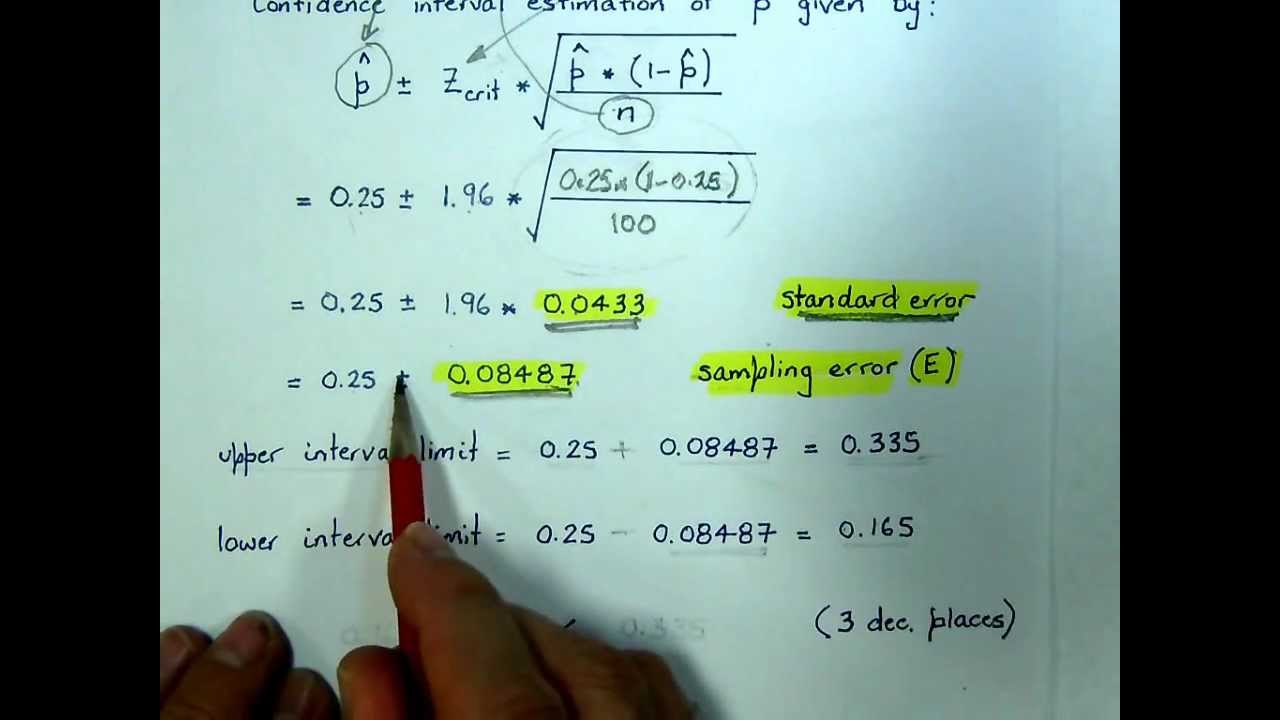 Confidence interval estimation of p given by:
p̂ ± Zcrit * √(p̂ * (1-p̂) / n)
= 0.25 ± 1.96 * √(0.25 * (1-0.25) / 100)
= 0.25 ± 1.96 * 0.0433 standard error
= 0.25 ± 0.08487 sampling error (E)
upper interval limit = 0.25 + 0.08487 = 0.335
lower interval limit = 0.25 - 0.08487 = 0.165
0.335 (3 dec. places)